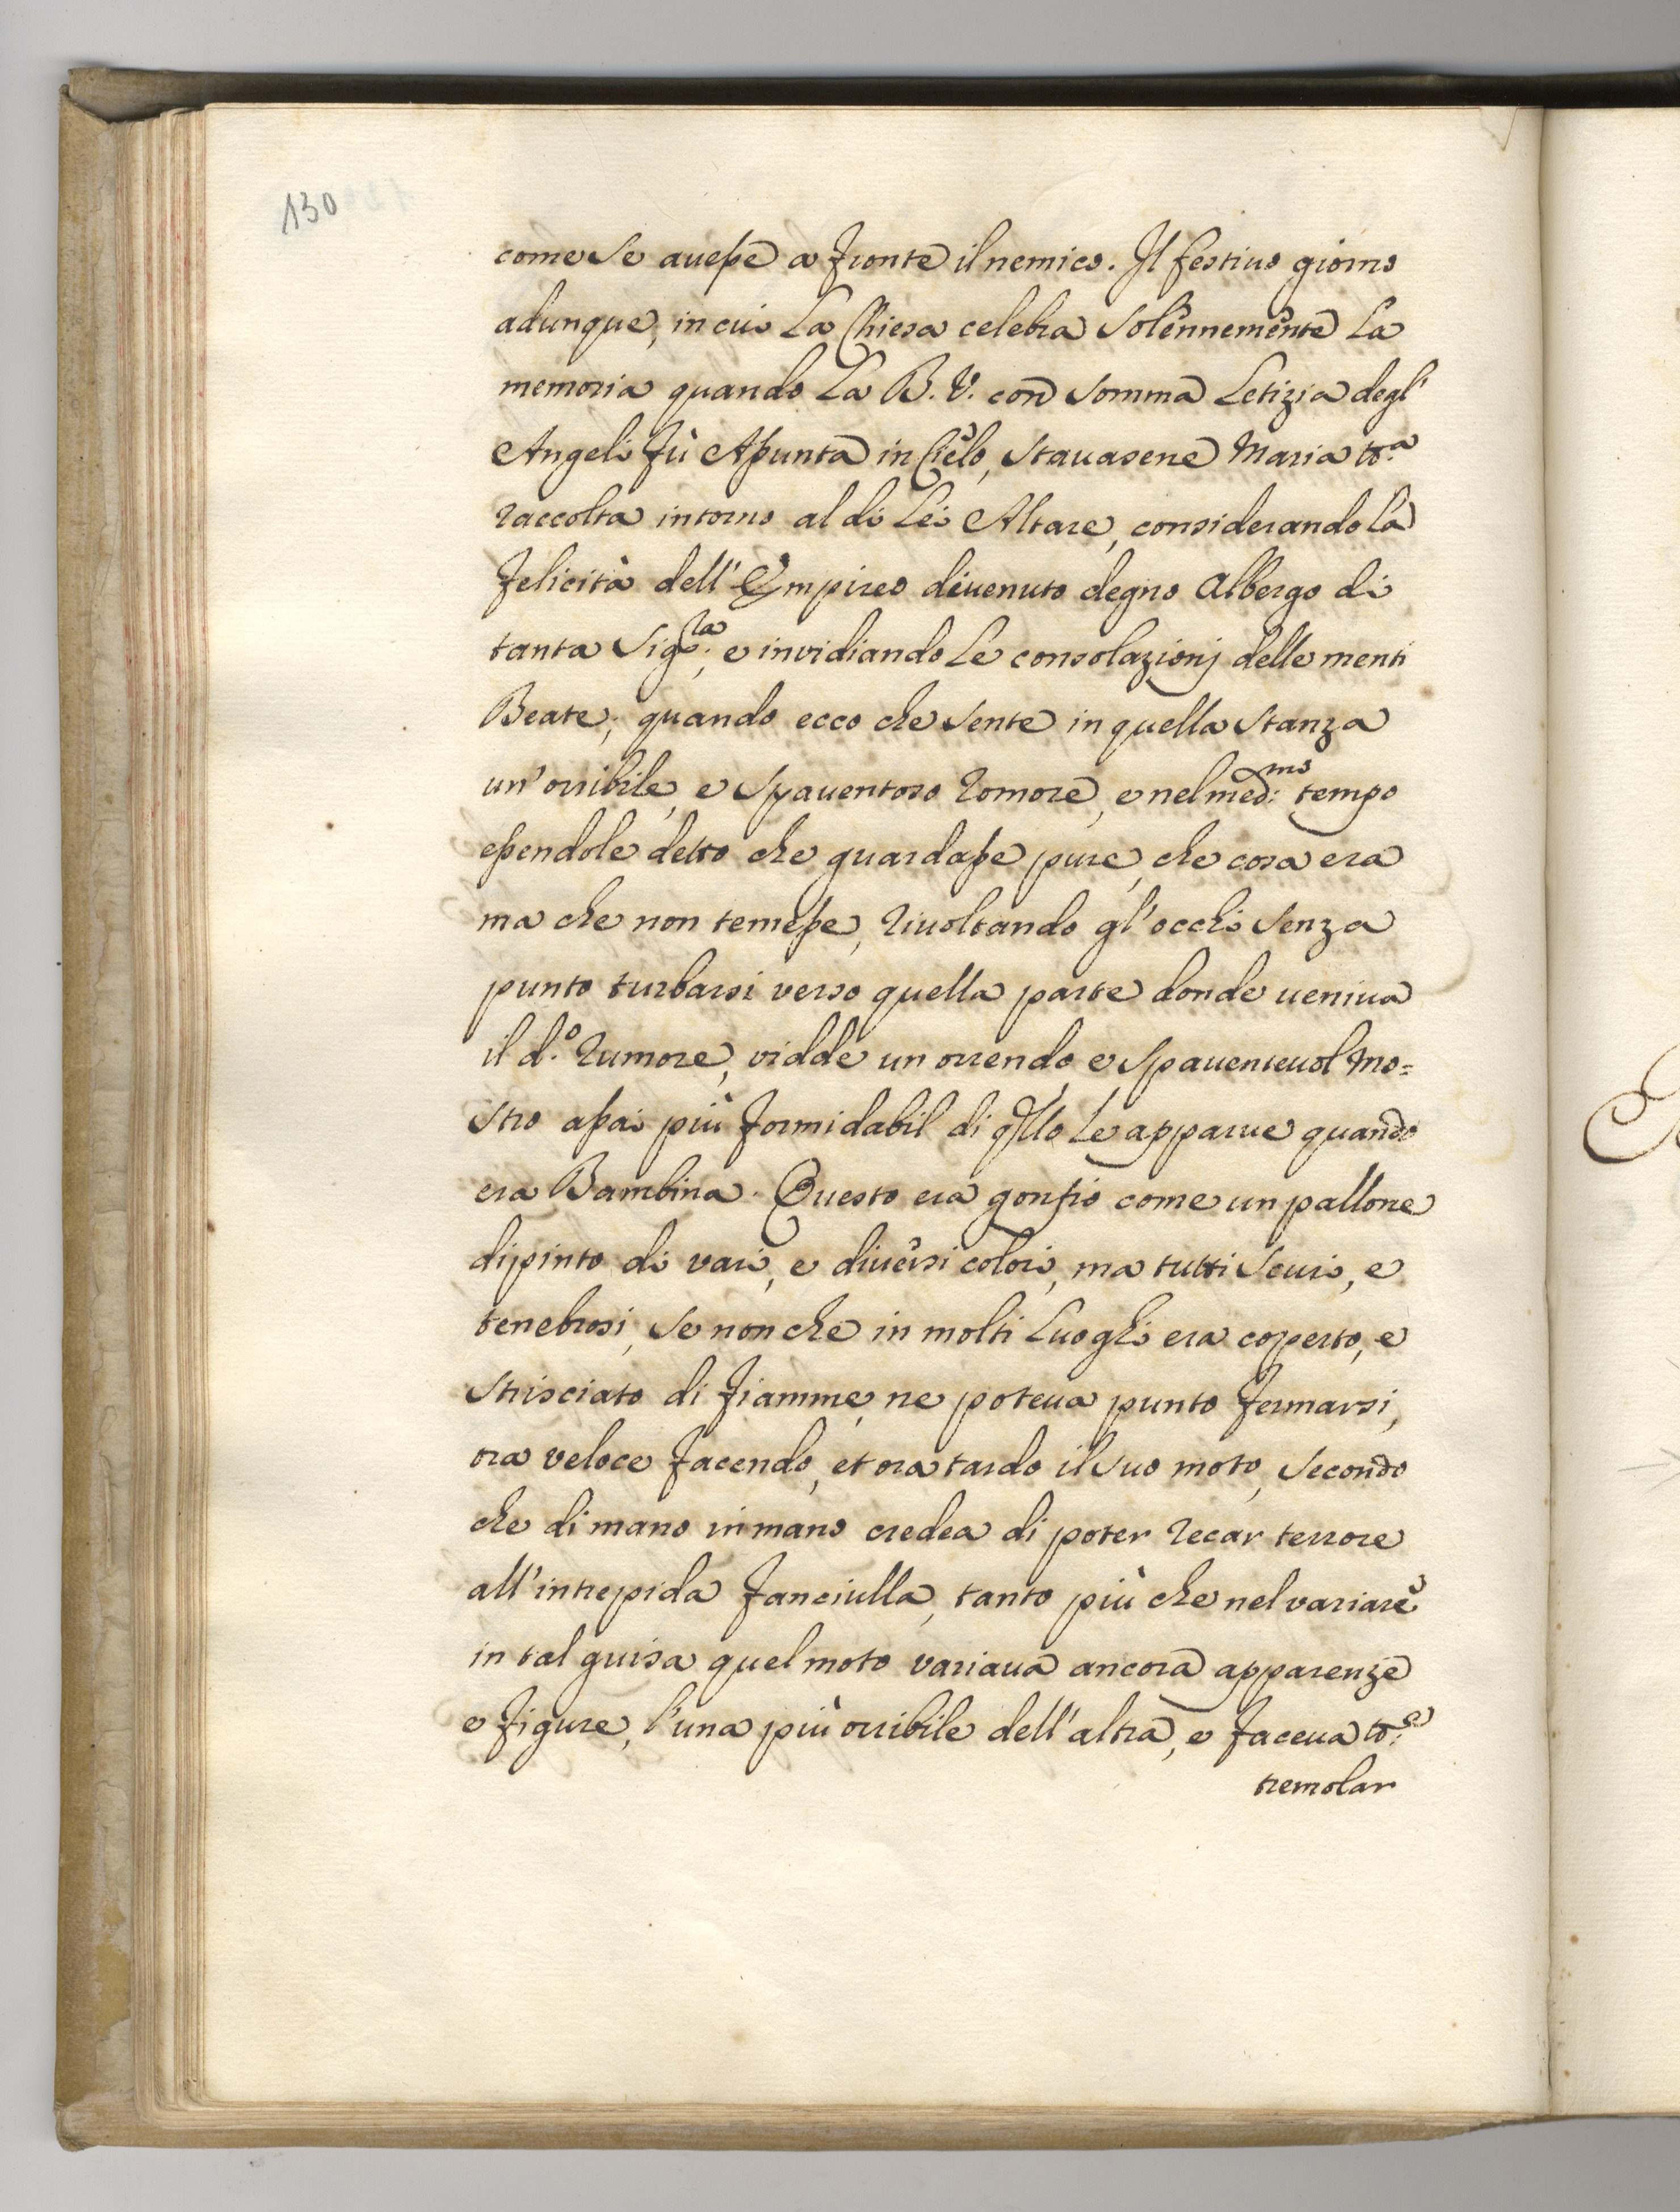 130
come se auesse a fronte il nemico. Il festiuo giorno
adunque, in cui La Chiesa celebra solennemente La
memoria quando La B. V. con somma Letizia degl'
Angeli fù Assunta in Cielo, stauasene Maria tt.ª
raccolta intorno al di Lei Altare, considerando La
felicità dell'Empireo diuenuto degno Albergo di
tanta Sig.ra, e invidiando Le consolazionj delle menti
Beate; quando ecco che sente in quella stanza
un'orribile, e spauentoso romore, e nel med:mo tempo
essendole detto che guardasse pure, che cosa era
ma che non temesse, riuoltando gl'occhi senza
punto turbarsi verso quella parte donde ueniua
il d.º rumore, vidde un orrendo, e spauenteuol Mo=
stro assai più formidabil di qllo Le apparue quando
era Bambina. Questo era gonfio come un pallone
dipinto di vari, e diuersi colori, ma tutti scuri, e
tenebrosi, se non che in molti Luoghi era coperto, e
strisciato di fiamme, ne poteua punto fermarsi,
ora veloce facendo, et ora tardo il suo moto, secondo
che di mano in mano credea di poter recar terrore
all'intrepida fanciulla, tanto più che nel variare
in tal guisa quel moto variaua ancora apparenze
e figure, l'una più orribile dell'altra, e faceua tt.ª
tremolar